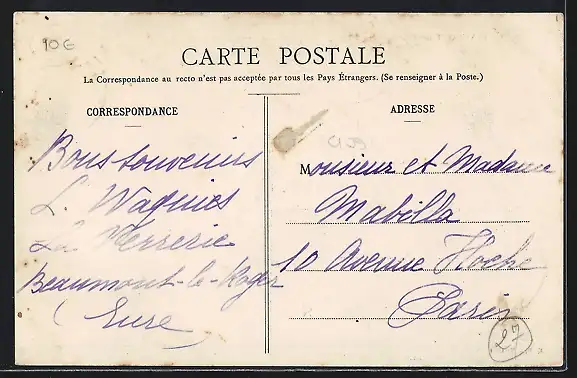 906
CARTE POSTALE
La Correspondance au recto n'est pas acceptée par tous les Pays Étrangers. (Se renseigner à la Poste.)
CORRESPONDANCE
Bons souvenirs
L. Wagnies
La Verrerie
Beaumont-le-Roger
(Eure)
ADRESSE
Monsieur et Madame
Mabilla
10 Avenue Hoche
Paris
27